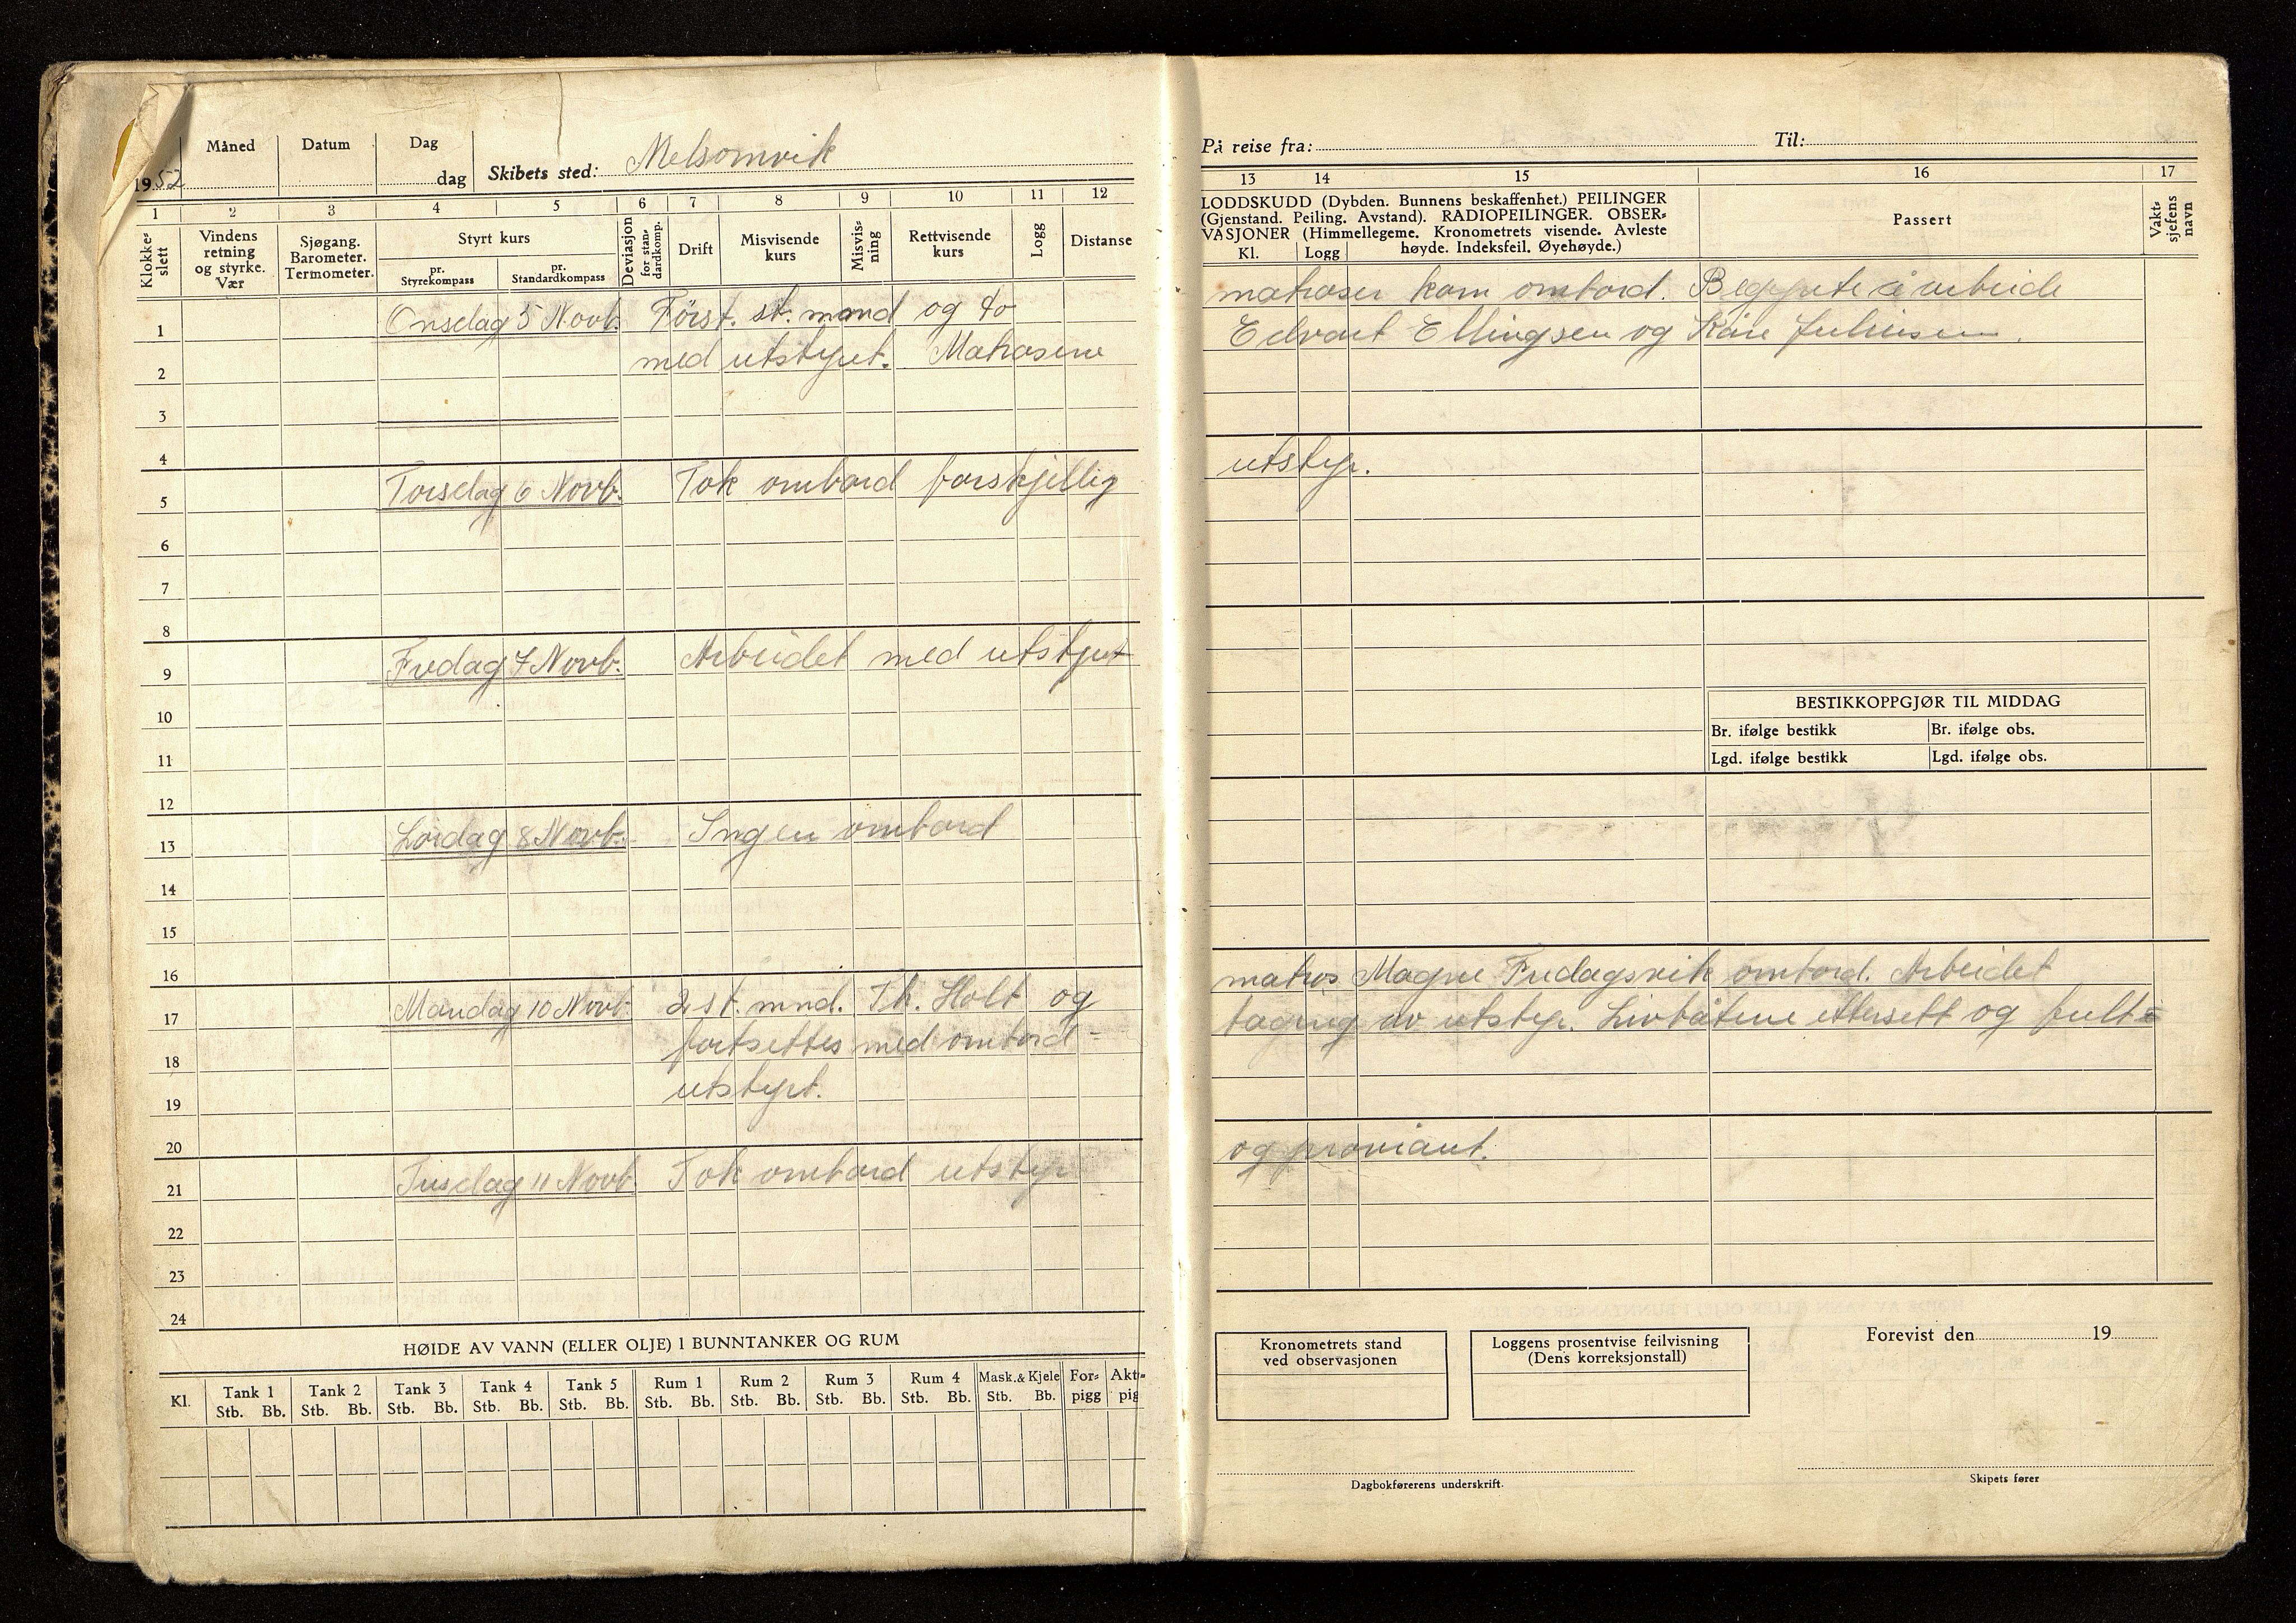 Måned Datum Dag
1952 dag Skibets sted: Melsomvik
1 2 3 4 5 6 7 8 9 10 11 12
Klokke-slett
Vindens retning og styrke. Vær
Sjøgang. Barometer. Termometer.
Styrt kurs
pr. Styrekompass
pr. Standardkompass
Deviasjon for standardkomp.
Drift
Misvisende kurs
Misvisning
Rettvisende kurs
Logg
Distanse
1 Onsdag 5 Novb. Först. st. mand og to
2 med utstyret. Matrosene
3
4
5 Torsdag 6 Novb. Tok ombord forskjellig
6
7
8
9 Fredag 7 Novb. Arbeidet med utstyret
10
11
12
13 Lördag 8 Novb. Ingen ombord
14
15
16
17 Mandag 10 Novb. 2 st. mnd. Th. Holt og
18 fortsettes med ombord=
19 utstyrt.
20
21 Tirsdag 11 Novb. Tok ombord utstyr
22
23
24
HØIDE AV VANN (ELLER OLJE) I BUNNTANKER OG RUM
Kl. Tank 1 Tank 2 Tank 3 Tank 4 Tank 5 Rum 1 Rum 2 Rum 3 Rum 4 Mask. & Kjele For-pigg Akt-pig
Stb. Bb. Stb. Bb. Stb. Bb. Stb. Bb. Stb. Bb. Stb. Bb. Stb. Bb. Stb. Bb. Stb. Bb. Stb. Bb.
På reise fra: Til:
13 14 15 16 17
LODDSKUDD (Dybden. Bunnens beskaffenhet.) PEILINGER
(Gjenstand. Peiling. Avstand). RADIOPEILINGER. OBSER-
VASJONER (Himmellegeme. Kronometrets visende. Avleste
høyde. Indeksfeil. Øyehøyde.)
Kl. Logg
Passert
Vakt-sjefens navn
matroser kom ombord. Begynte å arbeide
Edvart Ellingsen og Kåre Juliusen.
utstyr.
BESTIKKOPPGJØR TIL MIDDAG
Br. ifølge bestikk Br. ifølge obs.
Lgd. ifølge bestikk Lgd. ifølge obs.
matros Magne Fredagsvik ombord. Arbeidet
taging av utstyr. Livbåtene ettersett og fult=
og proviant.
Kronometrets stand
ved observasjonen
Loggens prosentvise feilvisning
(Dens korreksjonstall)
Forevist den 19
Dagbokførerens underskrift.
Skipets fører